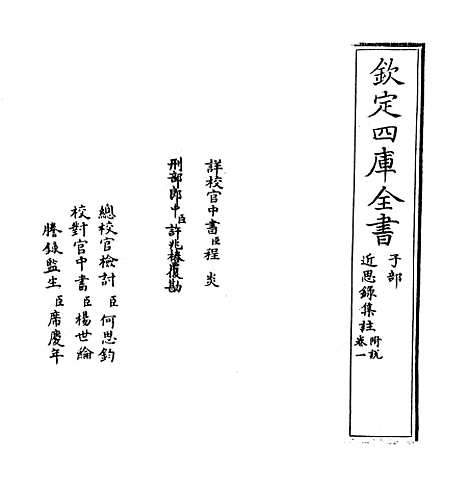 欽定四庫全書
子部
近思錄集註
附說
卷一
詳校官中書臣程炎
刑部郎中臣許兆椿覆勘
總校官檢討臣何思鈞
校對官中書臣楊世綸
謄錄監生臣席慶年